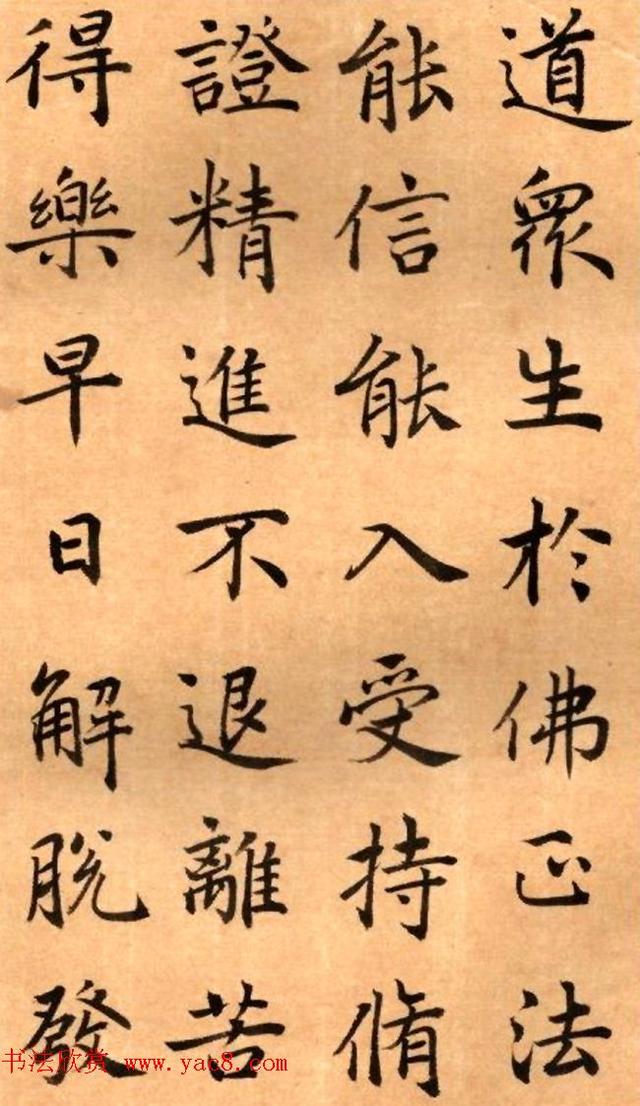 道眾生於佛正法
能信能入受持脩
證精進不退離苦
得樂早日解脫發
书法欣赏 www.yac8.com